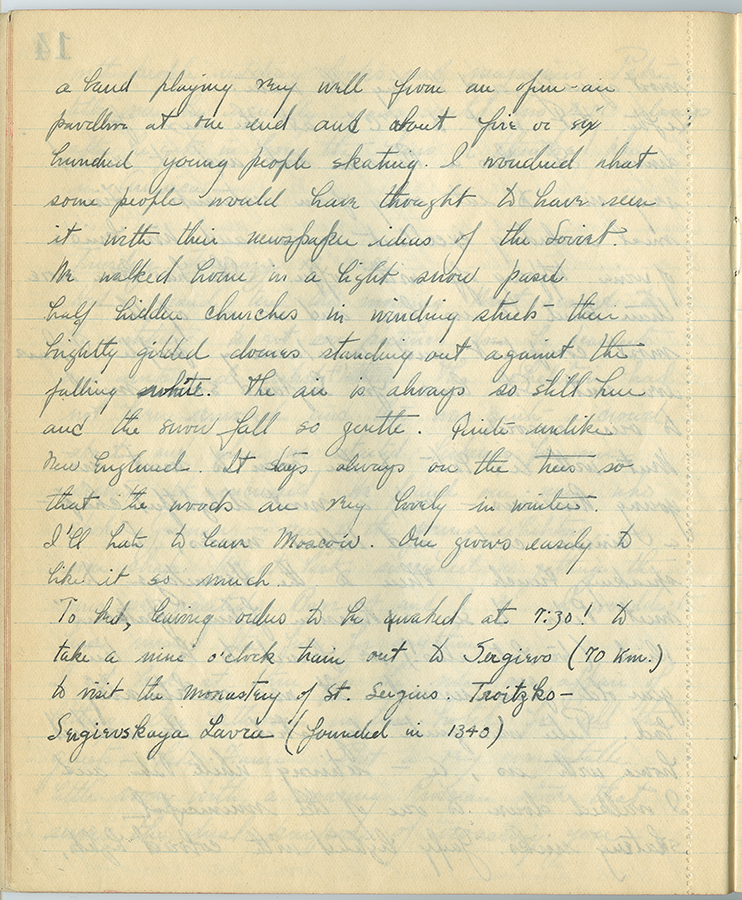 a band playing very well from an open-air
pavillion at one end and about five or six
hundred young people skating. I wondered what
some people would have thought to have seen
it with their newspaper ideas of the Soviet.
We walked home in a light snow passed
half hidden churches in winding streets their
brightly gilded domes standing out against the
falling white. The air is always so still here
and the snow fall so gentle. Quite unlike
New England. It stays always on the trees so
that the woods are very lovely in winter.
I'll hate to leave Moscow. One grows easily to
like it so much.
To bed, leaving orders to be waked at 7:30! to
take a nine o'clock train out to Sergievo (70 Km.)
to visit the monastery of St. Sergius Troitzko-
Sergievskaya Lavra (founded in 1340)